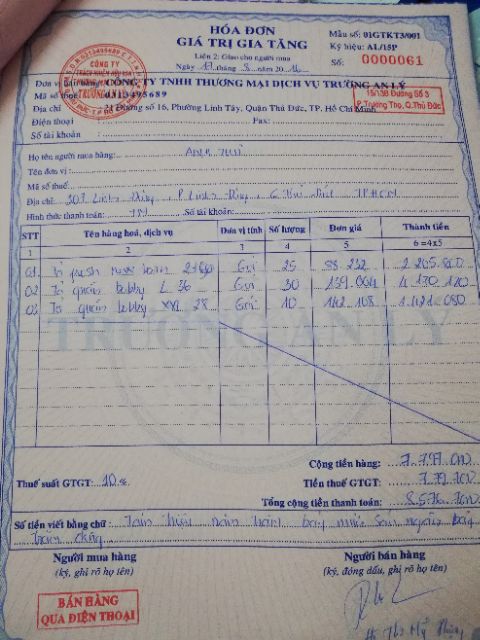 HÓA ĐƠN
GIÁ TRỊ GIA TĂNG
Liên 2: Giao cho người mua
Ngày 17 tháng 8 năm 2016
Mẫu số: 01GTKT3/001
Ký hiệu: AL/15P
Số: 0000061
CÔNG TY
TRÁCH NHIỆM HỮU HẠN
Đơn vị bán hàng: CÔNG TY TNHH THƯƠNG MẠI DỊCH VỤ TRƯỜNG AN LÝ
Mã số thuế: 0313495689
Địa chỉ: 21 Đường số 16, Phường Linh Tây, Quận Thủ Đức, TP. Hồ Chí Minh
15/13B Đường Số 3
P.Trường Thọ, Q.Thủ Đức
Điện thoại: Fax:
Số tài khoản:
Họ tên người mua hàng: Anh
Tên đơn vị:
Mã số thuế:
Địa chỉ: Linh Đông, P. Linh Đông, Q Thủ Đức, TPHCM
Hình thức thanh toán: TM Số tài khoản:
STT Tên hàng hoá, dịch vụ Đơn vị tính Số lượng Đơn giá Thành tiền
1 2 3 4 5 6 =4x5
01 Tả new born Gói 25 88.232 2.205.800
02 Tả quần bobby L 36 Gói 30 139.004 4.170.120
03 Tả quần bobby XXL 28 Gói 10 142.108 1.421.080
TRƯỜNG AN LÝ
Cộng tiền hàng: 7.797.000
Thuế suất GTGT: 10% Tiền thuế GTGT: 779.700
Tổng cộng tiền thanh toán: 8.576.700
Số tiền viết bằng chữ: Tám triệu năm trăm bảy mươi sáu ngàn bảy
trăm đồng
Người mua hàng Người bán hàng
(ký, ghi rõ họ tên) (ký, đóng dấu, ghi rõ họ tên)
BÁN HÀNG
QUA ĐIỆN THOẠI